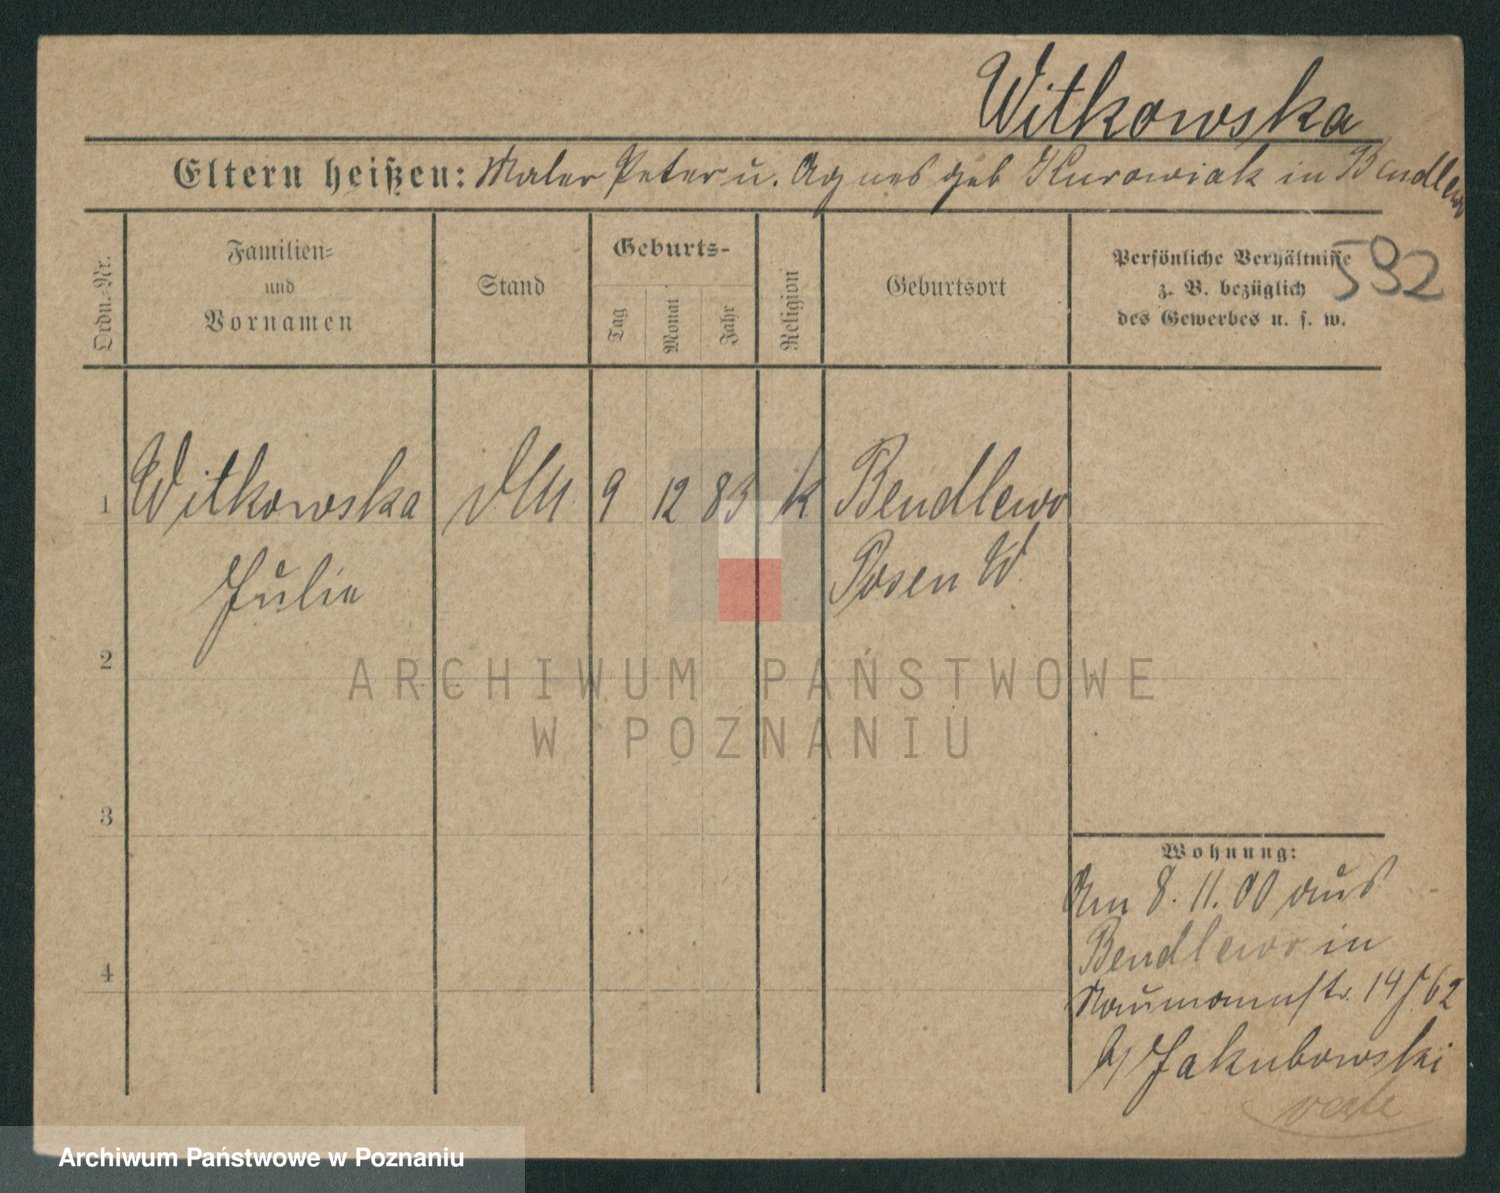 Witkowska
Eltern heißen: Maler Peter u. Agnes geb Kurowiak in Bendlewo
Ordn.-Nr.
Familien-
und
Vornamen
Stand
Geburts-
Tag
Monat
Jahr
Religion
Geburtsort
Persönliche Verhältnisse
z. B. bezüglich
des Gewerbes u. s. w.
592
1 Witkowska 9 12 83 k Bendlewo
Julie Posen W
2
3
4
Wohnung:
Am 8. 11. 00 aus
Bendlewo in
Naumannstr. 14 62
b/ Jakubowski
verte
ARCHIWUM PAŃSTWOWE
W POZNANIU
Archiwum Państwowe w Poznaniu